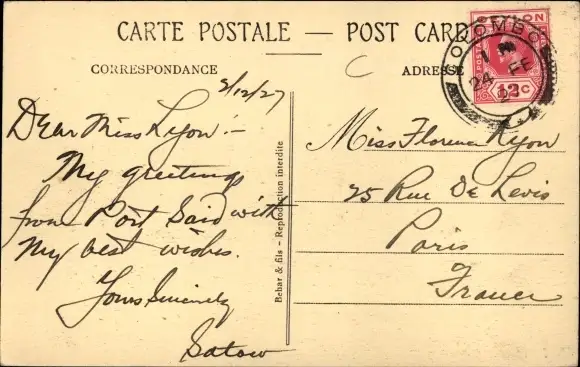 CARTE POSTALE — POST CARD
CORRESPONDANCE
C
ADRESSE
CEYLON
POSTAGE
12c
COLOMBO
24 FE
2/12/27
Dear Miss Lyon :-
My greetings
from Port Said with
My best wishes.
Yours Sincerely
Satow
Behar & fils - Reproduction interdite
Miss Florence Lyon
25 Rue De Levis
Paris
France